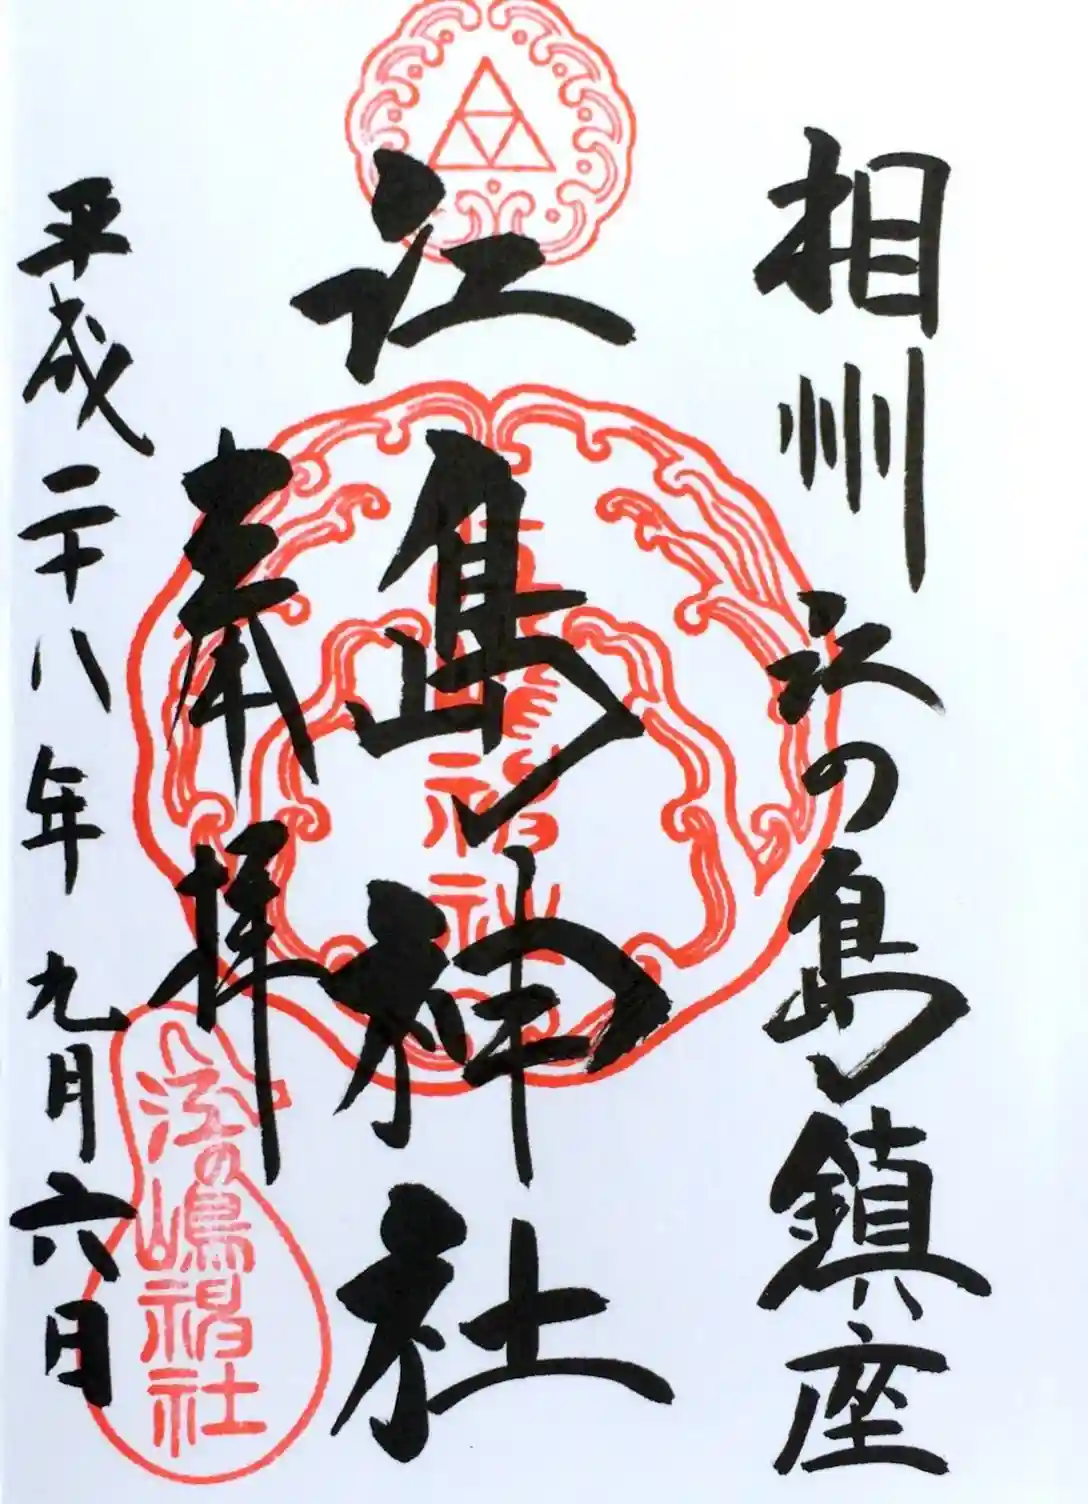 相州江の島鎮座
江島神社
奉拝
平成二十八年九月六日
江の嶋神社